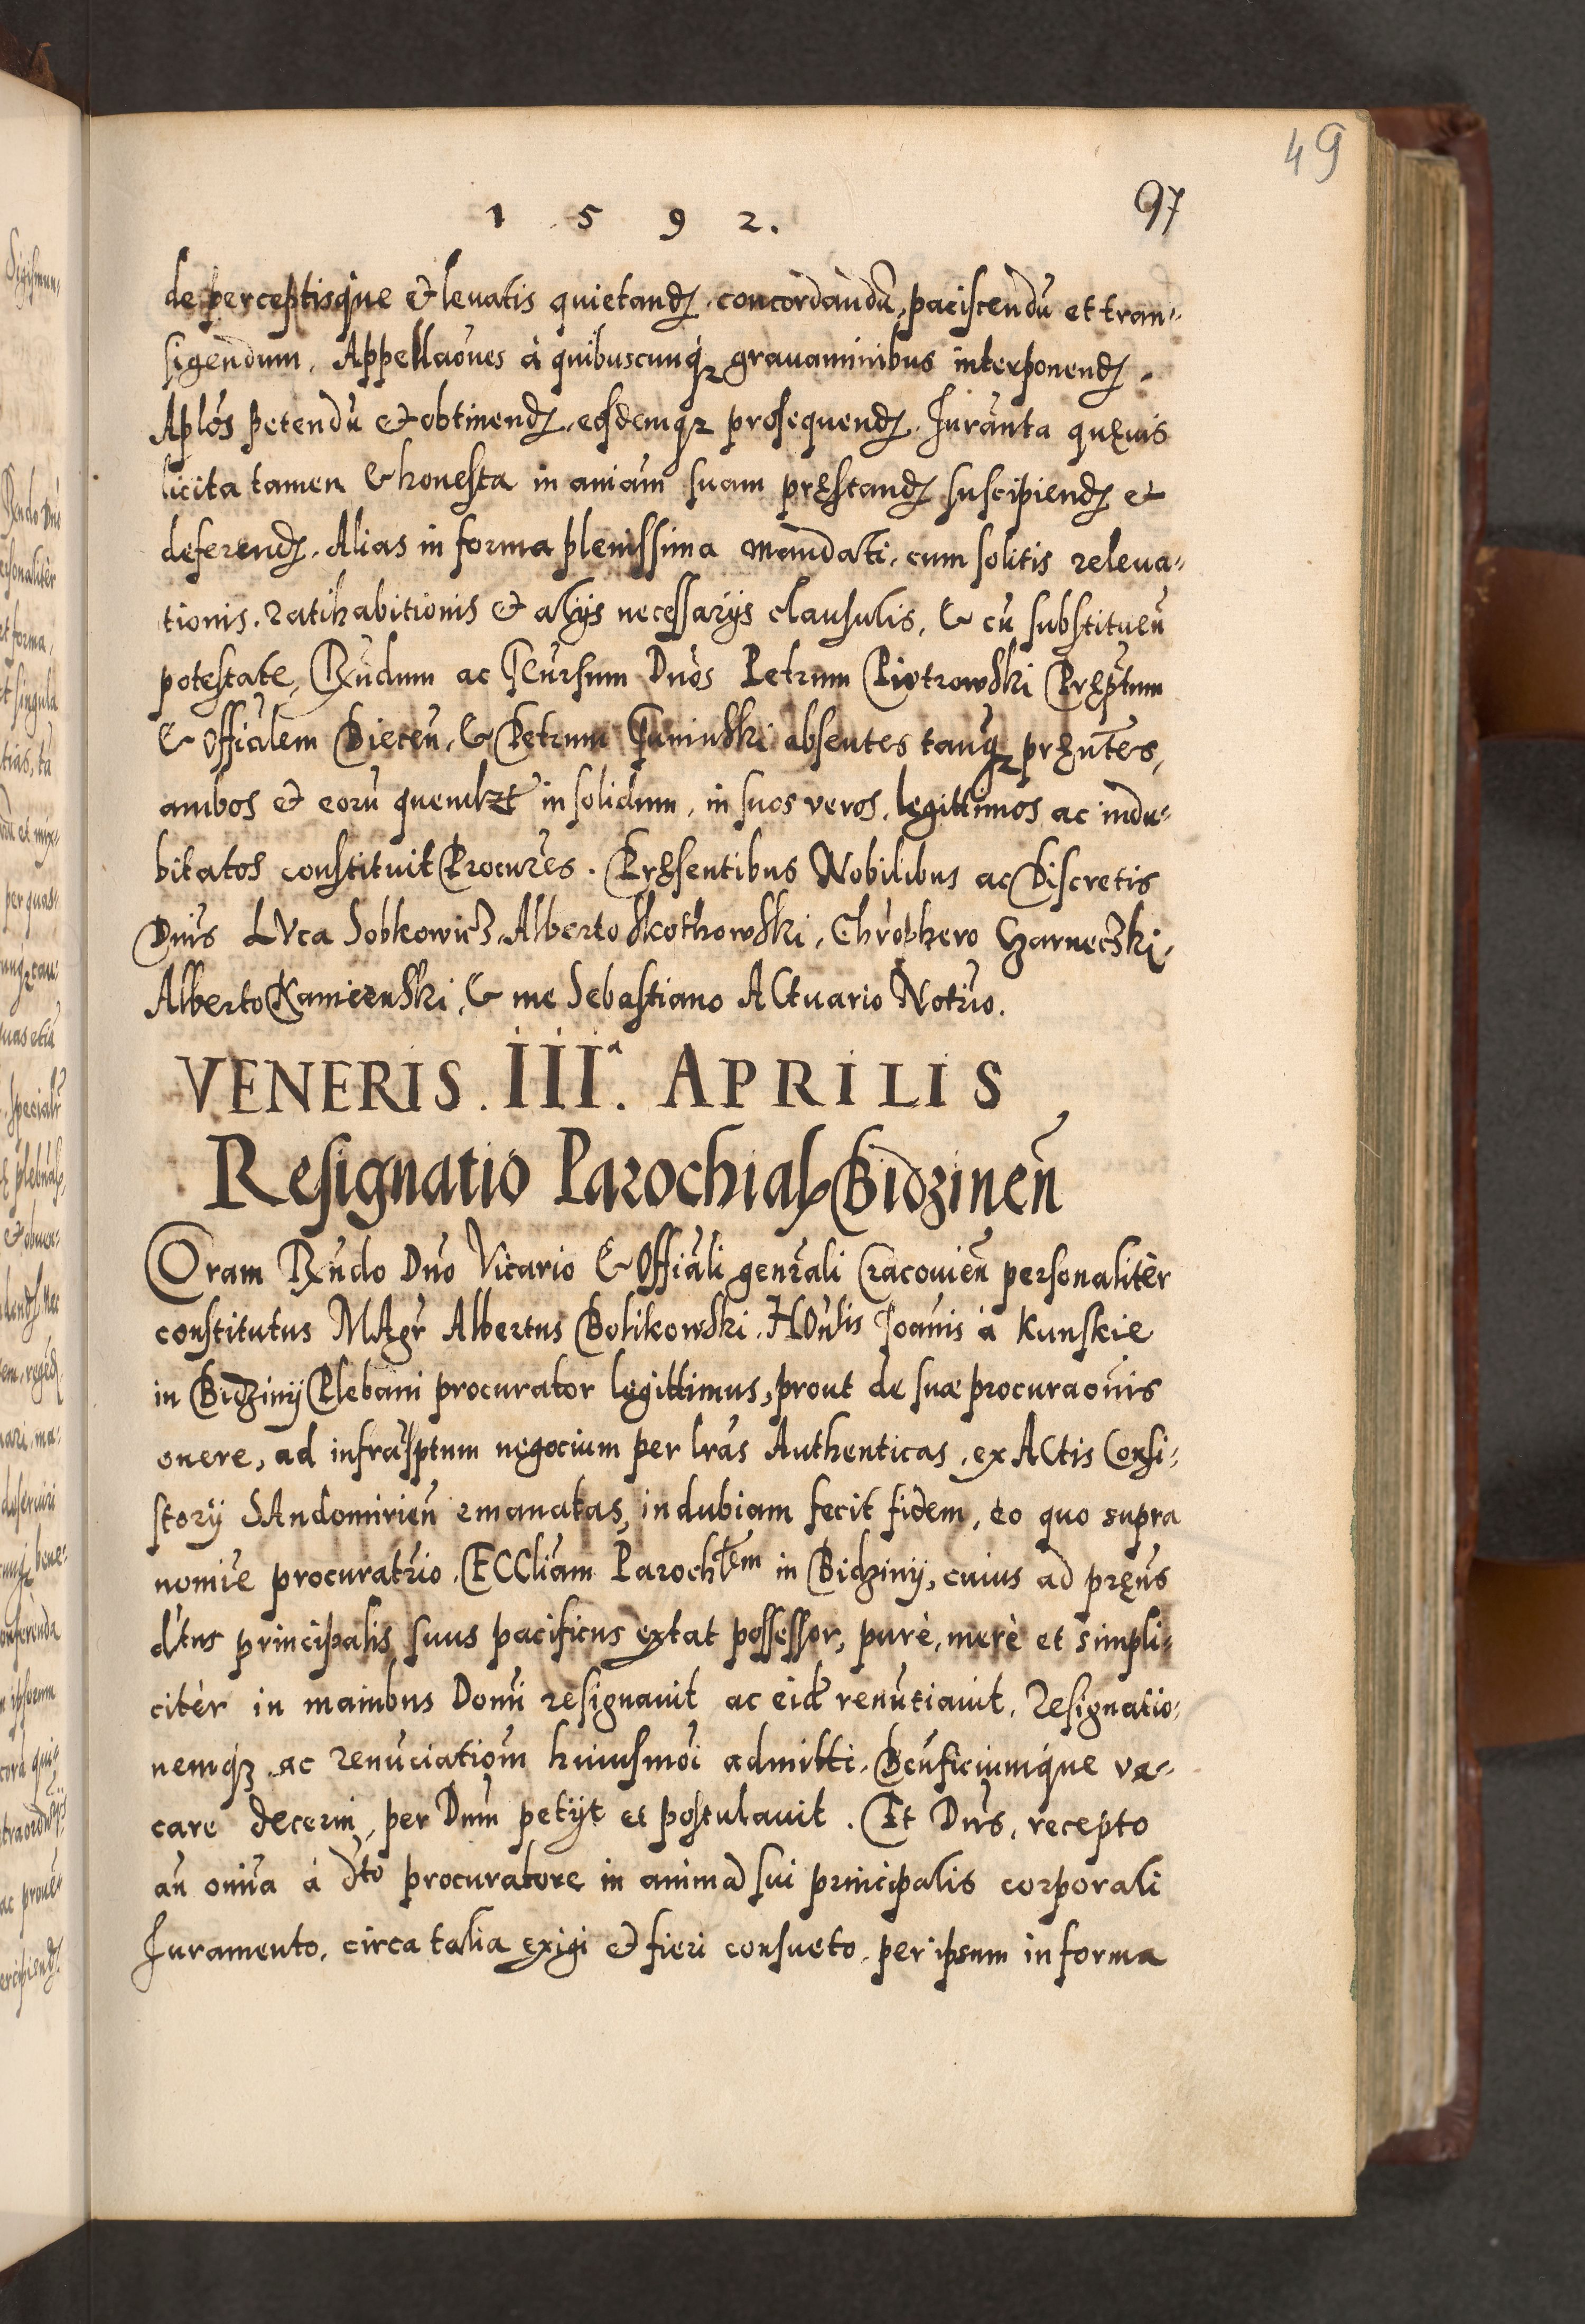 49
97
1 5 9 2.
de perceptisque et levatis quietand, concordandū, paciscendū et tran-
sigendum, Appellaōnes à quibuscunq gravaminibus interponend,
Aplōs petendū et obtinend, eosdemq prosequend, Iuranta quęvis
licita tamen & honesta in aniam suam pręstand suscipiend et
deferend. Alias in forma plenissima mandati, cum solitis releva-
tionis, ratihabitionis et alijs necessarijs clausulis, & cū substituen
potestate, Rndum ac Gnrsum Dnos Petrum Piotrowski Pręptum
& Offialem Biecen, & Petrum absentes tanq pręntes,
ambos et eorū quemlzt in solidum, in suos veros, legittimos ac indu-
bitatos constituit Procures. Pręsentibus Nobilibus ac Discretis
Dnis LVca Sobkowicz, Alberto Skothowski, Chrophero Czarneczki,
Alberto Kamienski, & me Sebastiano ACtuario Notrio.
VENERIS. IIIa. APRILIS
Resignatio Parochial Bidzinen
Coram Rndo Dno Vicario & Offiali genrali Cracovien personalitèr
constitutus MAgr Albertus Bolikowski, HOnlis Joanis à Kunskie
in Bidziny Plebani procurator legittimus, prout de suæ procuraonis
onere, ad infrasptum negocium per lras Authenticas, ex ACtis Consi-
story SAndomirien emanatas, indubiam fecit fidem, eo quo supra
nomie procuratrio, ECCliam Parochlem in Bidziny, cuius ad pręns
dtus principalis suus pacificus extat possessor, purè, merè et simpli-
citèr in manibus Donii resignavit ac eid renūtiavit, Resignatio-
nemq ac renūciatiom huiusmoi admitti, Benficiumque va-
care decerni, per Dnm petijt et postulavit. Et Dns, recepto
an omīa à dto procuratore in animā sui principalis corporali
Iuramento, circa talia exigi et fieri consueto, per ipsum in forma